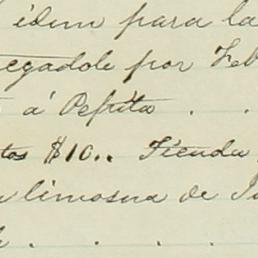 idem para la
egadole por Feb
á Pepita . .
tos $10.. Tienda
limosna de Ju
. . . .